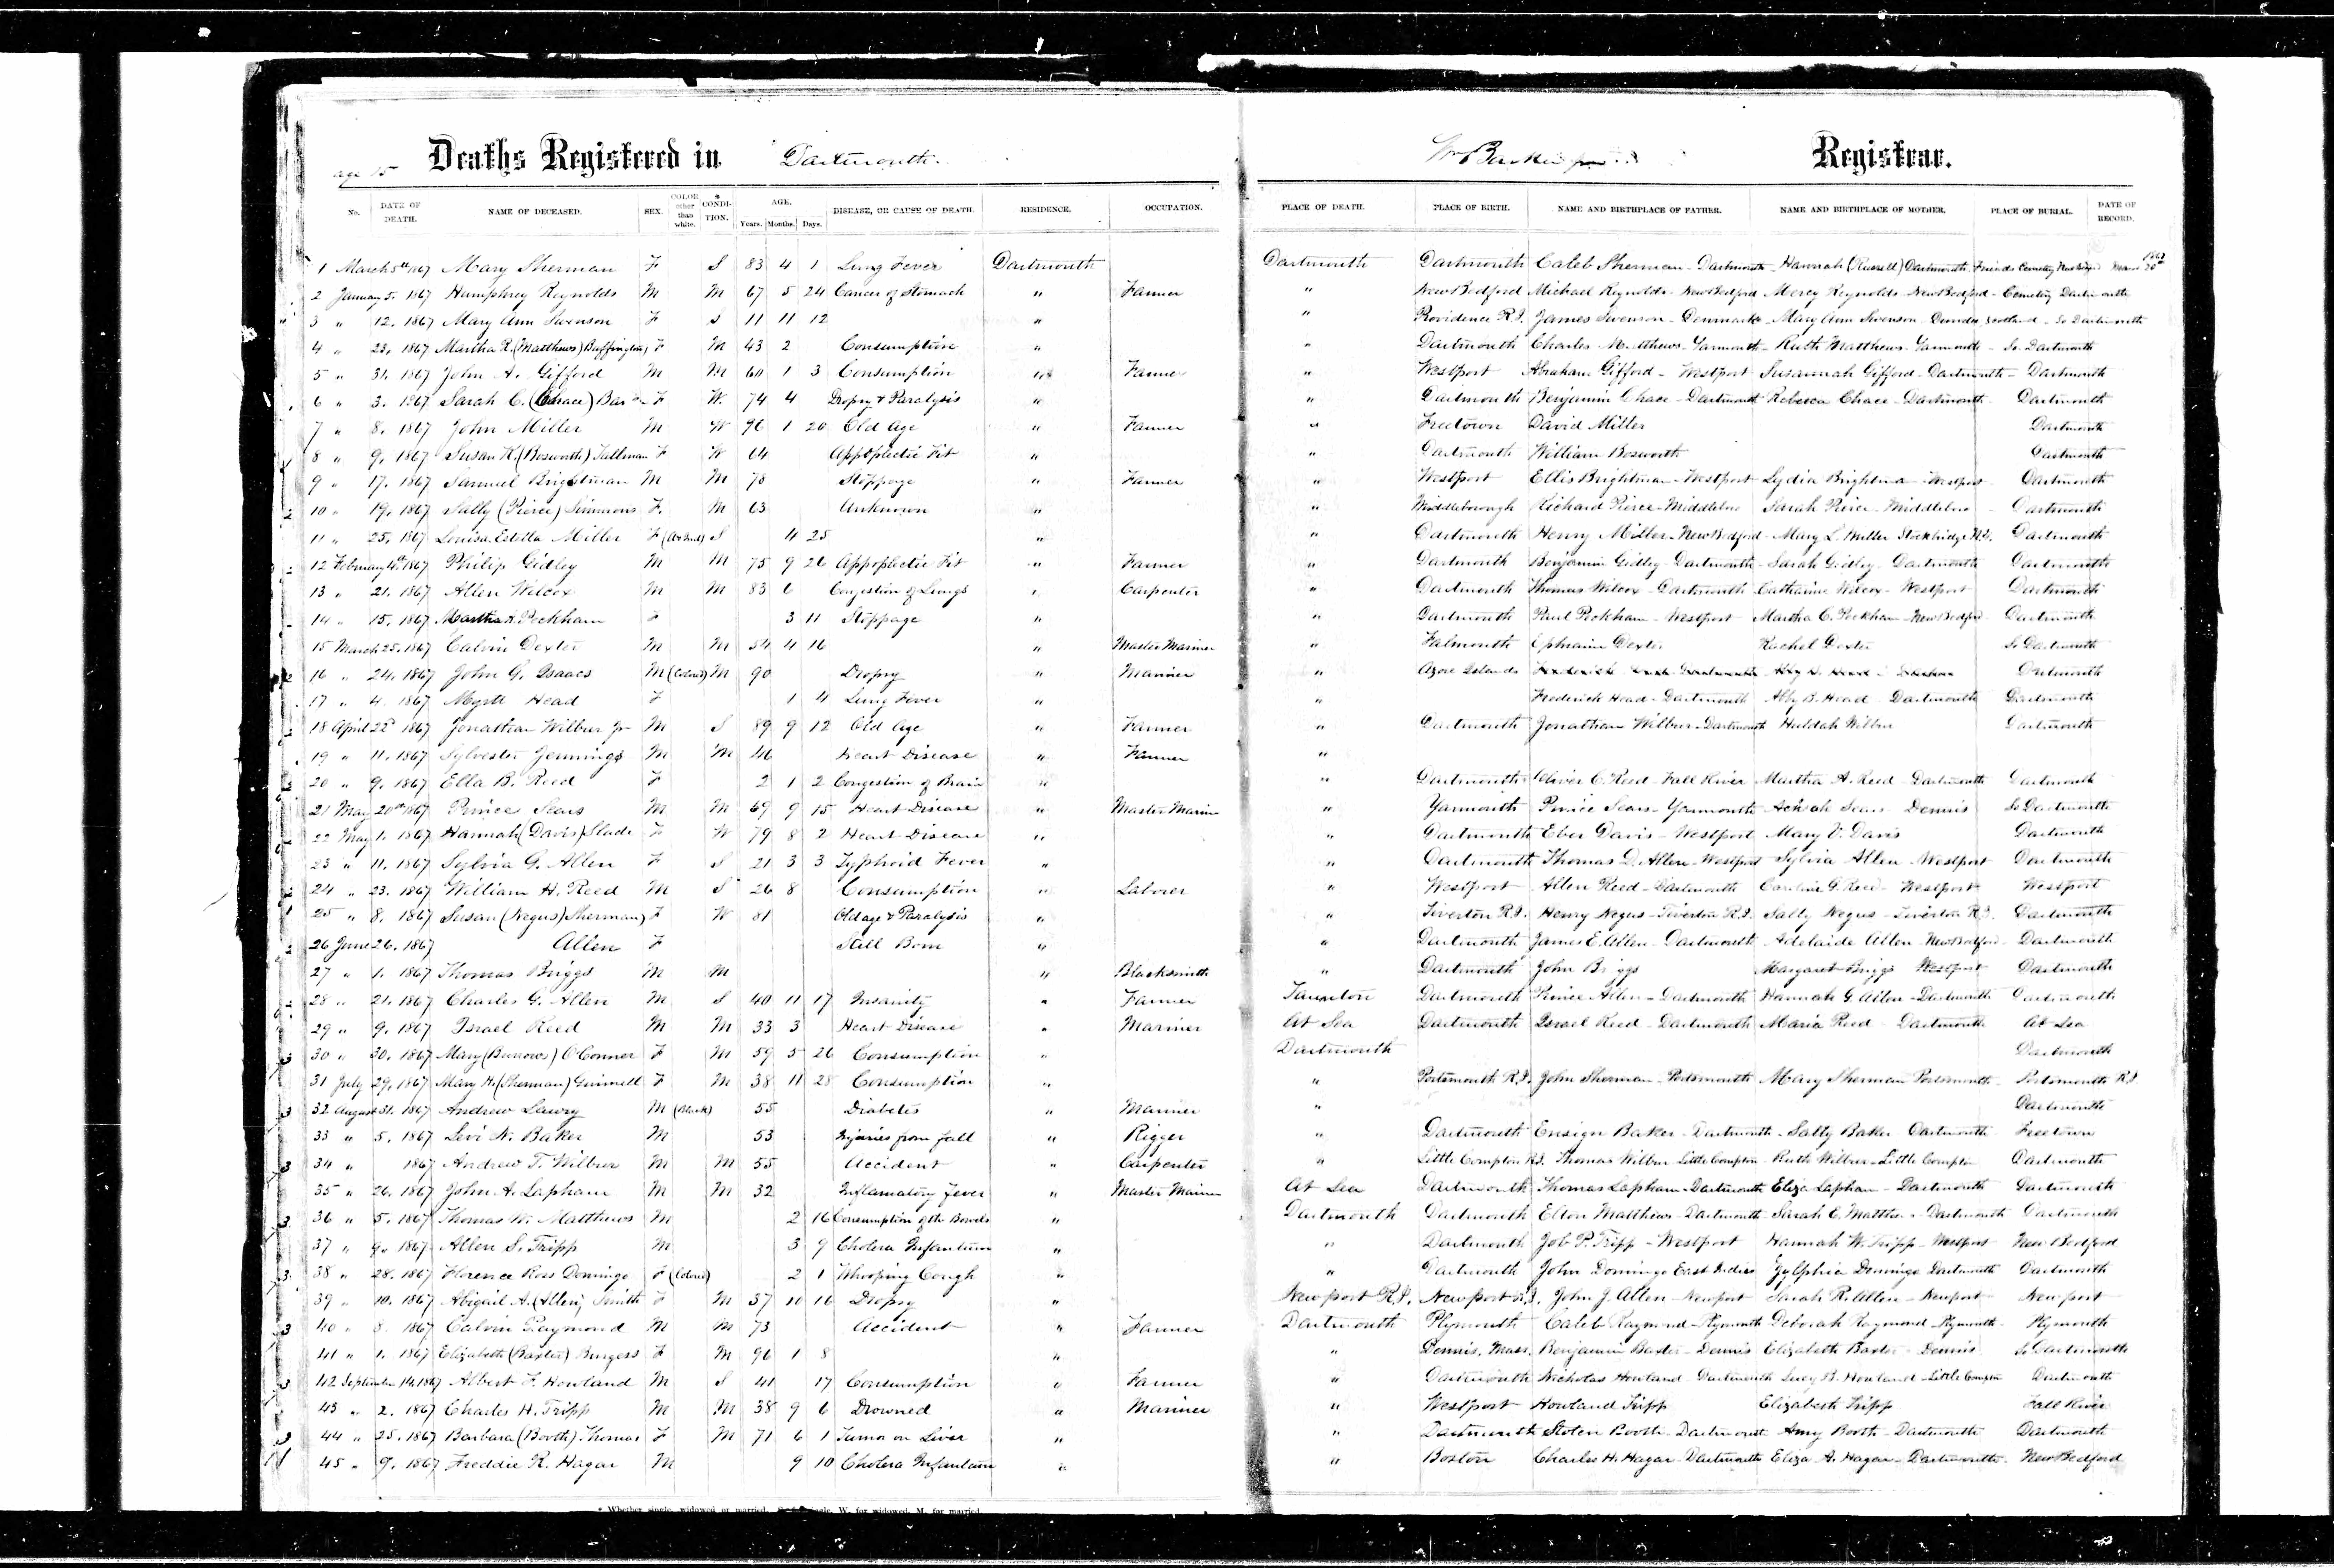 age 15 Deaths Registered in Dartmouth. Wm Barker jr Registrar.
No. DATE OF DEATH. NAME OF DECEASED. SEX. COLOR other than white. * CONDITION. AGE. Years. Months. Days. DISEASE, OR CAUSE OF DEATH. RESIDENCE. OCCUPATION. PLACE OF DEATH. PLACE OF BIRTH. NAME AND BIRTHPLACE OF FATHER. NAME AND BIRTHPLACE OF MOTHER. PLACE OF BURIAL. DATE OF RECORD.
1 March 5th 1867 Mary Sherman F S 83 4 1 Lung Fever Dartmouth Dartmouth Dartmouth Caleb Sherman - Dartmouth - Hannah (Russell) Dartmouth Friends Cemetery
2 January 5. 1867 Humphrey Reynolds M M 67 5 24 Cancer of Stomach " Farmer " New Bedford Michael Reynolds - New Bedford Mercy Reynolds - New Bedford - Cemetery Dartmouth
3 " 12. 1867 Mary Ann Swenson F S 11 11 12 " " Providence R.I. James Swenson - Denmark - Mary Ann Swenson Dundee Scotland - So Dartmouth
4 " 23. 1867 Martha R. (Matthews) Buffington F M 43 2 Consumption " " Dartmouth Charles Matthews - Yarmouth - Ruth Matthews - Yarmouth - So. Dartmouth
5 " 31. 1867 John A. Gifford M M 60 1 3 Consumption " Farmer " Westport Abraham Gifford - Westport Susannah Gifford - Dartmouth - Dartmouth
6 " 3. 1867 Sarah C. (Chace) F W. 74 4 Dropsy & Paralysis " " Dartmouth Benjamin Chace - Dartmouth Rebecca Chace - Dartmouth Dartmouth
7 " 8. 1867 John Miller M W 96 1 20 Old Age " Farmer " Freetown David Miller Dartmouth
8 " 9. 1867 Susan K. (Bosworth) Tallman F W 64 Appoplectic Fit " " Dartmouth William Bosworth Dartmouth
9 " 17. 1867 Samuel Brightman M M 78 Stoppage " Farmer " Westport Ellis Brightman - Westport Lydia Brightman - Westport Dartmouth
10 " 19. 1867 Sally (Pierce) Simmons F. M 63 Unknown " " Middleborough Richard Pierce - Middleboro Sarah Pierce - Middleboro - Dartmouth
11 " 25. 1867 Louisa Estella Miller F S 4 25 " " Dartmouth Henry Miller - New Bedford - Mary L. Miller Stockbridge Dartmouth
12 February 4th 1867 Philip Gidley M M 75 9 26 Appoplectic Fit " Farmer " Dartmouth Benjamin Gidley - Dartmouth - Sarah Gidley - Dartmouth Dartmouth
13 " 21. 1867 Allen Wilcox M M 83 6 Congestion of Lungs " Carpenter " Dartmouth Thomas Wilcox - Dartmouth Catharine Wilcox - Westport Dartmouth
14 " 15. 1867 Martha A. Peckham F 3 11 Stoppage " " Dartmouth Paul Peckham - Westport Martha C. Peckham - New Bedford Dartmouth
15 March 25. 1867 Calvin Dexter M M 54 4 16 " Master Mariner " Falmouth Ephraim Dexter Rachel Dexter So Dartmouth
16 " 24. 1867 John G. Isaacs M (Colored) M 90 Dropsy " Mariner " Azore Islands Dartmouth
17 " 4. 1867 Head F 1 4 Lung Fever " " Frederick Head - Dartmouth Abby B. Head Dartmouth Dartmouth
18 April 22d 1867 Jonathan Wilbur Jr M S 89 9 12 Old Age " Farmer " Dartmouth Jonathan Wilbur - Dartmouth Huldah Wilbur Dartmouth
19 " 11. 1867 Sylvester Jennings M M 46 Heart Disease " Farmer "
20 " 9. 1867 Ella B. Reed F 2 1 2 Congestion of Brain " " Dartmouth Oliver C. Reed - Fall River Martha A. Reed Dartmouth Dartmouth
21 May 20th 1867 Prince Sears M M 69 9 15 Heart Disease " Master Marine " Yarmouth Prince Sears - Yarmouth Achsah Sears - Dennis So Dartmouth
22 May 1. 1867 Hannah (Davis) Slade F W 79 8 2 Heart Disease " " Dartmouth Eber Davis - Westport Mary V. Davis Dartmouth
23 " 11. 1867 Sylvia G. Allen F S 21 3 3 Typhoid Fever " " Dartmouth Thomas D. Allen - Westport Sylvia Allen Westport Dartmouth
24 " 23. 1867 William H. Reed M S 26 8 Consumption " Laborer " Westport Allen Reed - Dartmouth Caroline G. Reed - Westport Westport
25 " 8. 1867 Susan (Negus) Sherman F W 81 Old age & Paralysis " " Tiverton R.I. Henry Negus - Tiverton R.I. Sally Negus - Tiverton R.I. Dartmouth
26 June 26. 1867 Allen F Still Born " " Dartmouth James E. Allen - Dartmouth Adelaide Allen - New Bedford - Dartmouth
27 " 1. 1867 Thomas Briggs M M " Blacksmith " Dartmouth John Briggs Margaret Briggs Westport Dartmouth
28 " 21. 1867 Charles G. Allen M S 40 11 17 Insanity " Farmer Taunton Dartmouth Prince Allen - Dartmouth Hannah G Allen - Dartmouth Dartmouth
29 " 9. 1867 Israel Reed M M 33 3 Heart Disease " Mariner At Sea Dartmouth Israel Reed - Dartmouth Maria Reed - Dartmouth At Sea
30 " 30. 1867 Mary (Burrows) O'Conner F M 59 5 26 Consumption " Dartmouth Dartmouth
31 July 29, 1867 Mary H. (Sherman) Grinnell F M 38 11 28 Consumption " " Portsmouth R.I. John Sherman - Portsmouth Mary Sherman Portsmouth - Portsmouth R.I
32 August 31. 1867 Andrew Lawry M (Black) 55 Diabetes " Mariner " Dartmouth
33 " 5. 1867 Levi N. Baker M 53 Injuries from fall " Rigger " Dartmouth Ensign Baker - Dartmouth - Sally Baker Dartmouth Freetown
34 " 1867 Andrew T. Wilbur M M 55 Accident " Carpenter " Little Compton R.I. Thomas Wilbur - Little Compton - Ruth Wilbur - Little Compton Dartmouth
35 " 26. 1867 John A. Lapham M M 32 Inflamatory Fever " Master Mariner At Sea Dartmouth Thomas Lapham - Dartmouth Eliza Lapham - Dartmouth Dartmouth
36 " 5. 1867 Thomas W. Matthews M 2 16 Consumption of the Bowels " Dartmouth Dartmouth Elton Matthews - Dartmouth - Sarah E. Matthews - Dartmouth Dartmouth
37 " 9. 1867 Allen S. Tripp M 3 9 Cholera Infantum " " Dartmouth Job P. Tripp - Westport Hannah W. Tripp - Westport New Bedford
38 " 28. 1867 Florence Ross Domingo F (Colored) 2 1 Whooping Cough " " Dartmouth John Domingo East Indies Zylphia Domingo Dartmouth Dartmouth
39 " 10. 1867 Abigail A. (Allen) Smith F M 37 10 16 Dropsy " Newport R.I. Newport R.I. John J. Allen - Newport Sarah R. Allen - Newport Newport
40 " 8. 1867 Calvin Raymond M M 73 Accident " Farmer Dartmouth Plymouth Caleb Raymond - Plymouth Deborah Raymond - Plymouth - Plymouth
41 " 1. 1867 Elizabeth (Baxter) Burgess F M 96 1 8 " " Dennis, Mass. Benjamin Baxter - Dennis Elizabeth Baxter - Dennis So Dartmouth
42 September 14, 1867 Albert F. Howland M S 41 17 Consumption " Farmer " Dartmouth Nicholas Howland - Dartmouth Lucy B. Howland - Little Compton Dartmouth
43 " 2. 1867 Charles H. Tripp M M 38 9 6 Drowned " Mariner " Westport Howland Tripp Elizabeth Tripp Fall River
44 " 25. 1867 Barbara (Booth) Thomas F M 71 6 1 Tumor on Liver " " Dartmouth Booth - Dartmouth Amy Booth - Dartmouth Dartmouth
45 " 9. 1867 Freddie R. Hagar M 9 10 Cholera Infantum " " Boston Charles H. Hagar - Dartmouth Eliza A. Hagar - Dartmouth - New Bedford
* Whether single, widowed or married. S. for single, W. for widowed, M. for married.